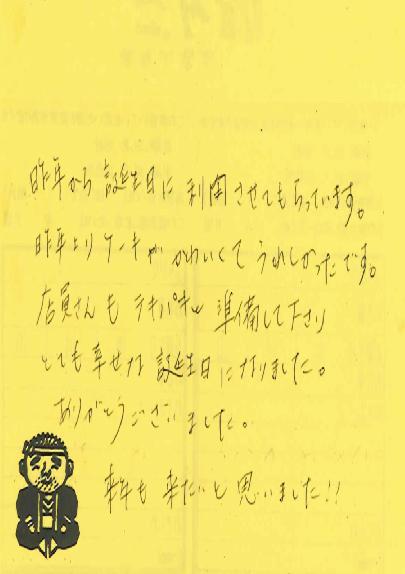 昨年から誕生日に利用させてもらっています。
昨年よりケーキがかわいくてうれしかったです。
店員さんもテキパキと準備して下さり
とても幸せな誕生日になりました。
ありがとうございました。
来年も来たいと思いました!!